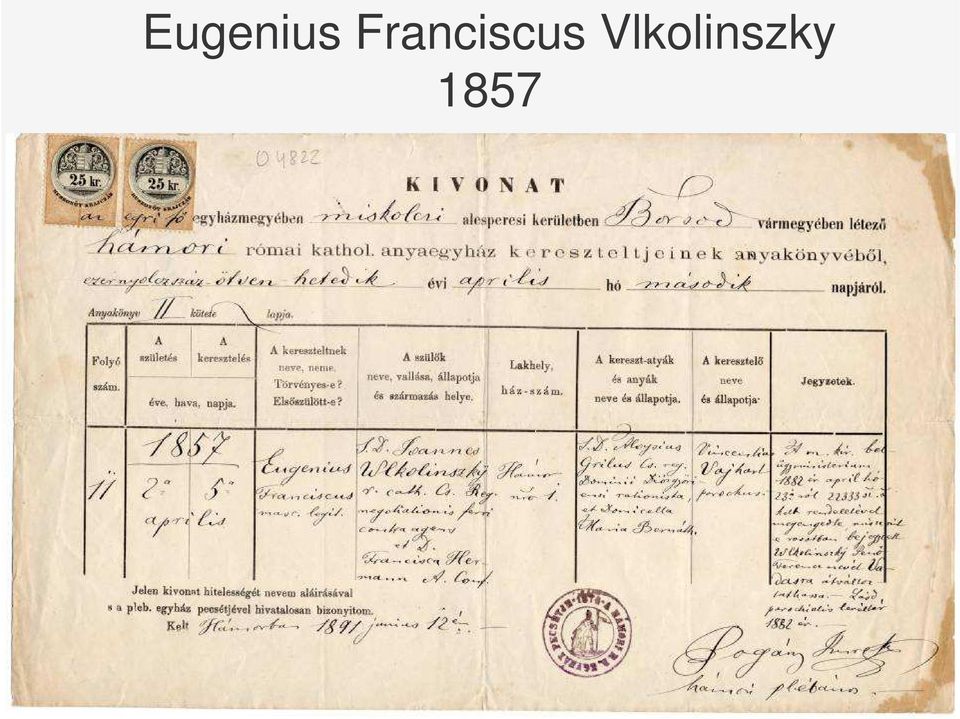 Eugenius Franciscus Vlkolinszky
1857
04822
25 kr. 25 kr.
KIVONAT
az egri fő egyházmegyében miskolci alesperesi kerületben Borsod vármegyében létező
hámori római kathol. anyaegyház kereszteltjeinek anyakönyvéből,
ezernyolczszáz ötven hetedik évi április hó második napjáról.
Anyakönyv II kötete lapja.
Folyó szám.
A születés A keresztelés
éve, hava, napja.
A kereszteltnek neve, neme. Törvényes-e? Elsőszülött-e?
A szülők neve, vallása, állapotja és származás helye.
Lakhely, ház-szám.
A kereszt-atyák és anyák neve és állapotja.
A keresztelő neve és állapotja
Jegyzetek.
11
1857
2ª 5ª
április
Eugenius
Franciscus
masc. legit.
S. D. Ioannes
Wlkolinszky
r. cath. Cs. Reg.
negotiationis ferri
contra agens
et D.
Francisca Her-
mann A. Conf.
Hámor
nro 1.
S. D. Aloysius
Grilus Cs. reg.
Dominii Diósgyőri-
ensi rationista,
et Domicella
Maria Bernáth.
Vincentius
Vajhart
parochus.
A m. kir. bel
ügyministerium
1882 év april hó
23-ról 22333 sz. a
kelt rendeletével
megengedte miszerint
e rovatban bejegyzett
Wlkolinszky Jenő
Ferencz nevét Va-
dasra átváltoz-
tathassa. Lásd
parochialis levéltár
1882 év.
Jelen kivonat hitelességét nevem aláirásával
s a pleb. egyház pecsétjével hivatalosan bizonyitom.
Kelt Hámorban 1891 junius 12én.
Pogány
hámori plébános.